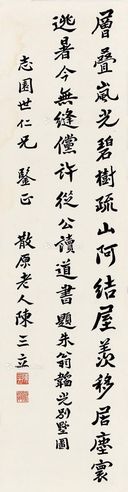 層疊嵐光碧樹疏山阿結屋羡移居塵寰
逃暑今無縫儻許從公讀道書題朱翁韜光別墅圖
志園世仁兄　鑒正
散原老人陳三立